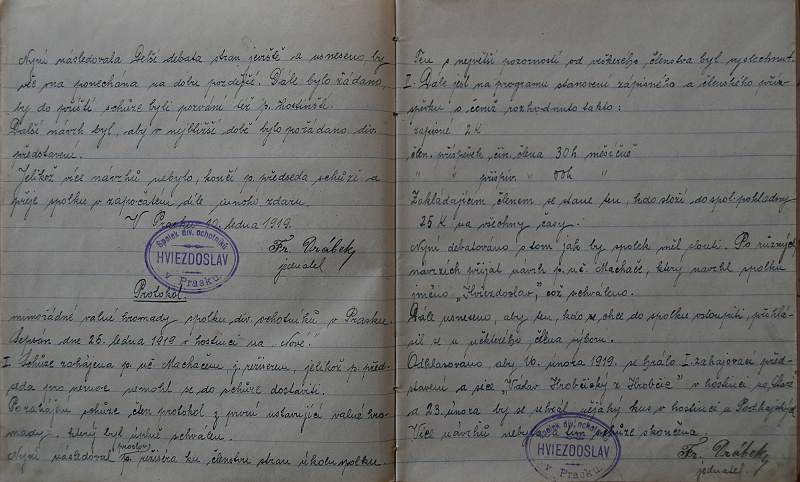 Nyní následovala delší debata stran jeviště a usneseno by
věc ta ponechána na dobu pozdější. Dále bylo žádáno,
by do příští schůze byli pozváni též p. hostinští.
Další návrh byl, aby v nejbližší době bylo pořádáno div.
představení.
Jelikož více návrhů nebylo, končí p. předseda schůzi a
přeje spolku v započatém díle mnoho zdaru.
V Prasku 10. ledna 1919.
Fr. Drábek,
jednatel
Spolek div. ochotníků
HVIEZDOSLAV
v Prasku.
Protokol.
mimořádné valné hromady spolku div. ochotníků v Prasku.
Sepsán dne 25. ledna 1919 v hostinci na „Nové".
I. Schůze zahájena p. uč. Machačem, režiserem, jelikož p. před-
seda pro nemoc nemohl se do schůze dostaviti.
Po zahájení schůze čten protokol z první ustavující valné hro-
mady, který byl úplně schválen.
Nyní následoval proslov p. režiséra ku členstvu stran úkolu spolku.
Ten s největší pozorností od veškerého členstva byl vyslechnut.
II. Dále jest na programu stanovení zápisného a členského přís-
pěvku, o čemž rozhodnuto takto:
zápisné 2 K
člen. příspěvek čin. člena 30 h měsíčně
" " přispív. " h "
Zakládajícím členem se stane ten, kdo složí do spol. pokladny
25 K na všechny časy.
Nyní debatováno o tom jak by spolek měl slouti. Po různých
návrzích přijat návrh p. uč. Machače, který navrhl spolku
jméno „Hviezdoslav", což schváleno.
Dále usneseno, aby ten, kdo chce do spolku vstoupiti, přihlá-
sil se u některého člena výboru.
Odhlasováno, aby 16. února 1919. se hrálo I. zahajovací před-
stavení a sice „Václav Hrobčický z Hrobčic" v hostinci na Staré
a 23. února by se sehrál nějaký kus v hostinci u Podhajských
Více návrhů nebylo a tím schůze skončena.
Fr. Drábek,
jednatel.
Spolek div. ochotníků
HVIEZDOSLAV
v Prasku.